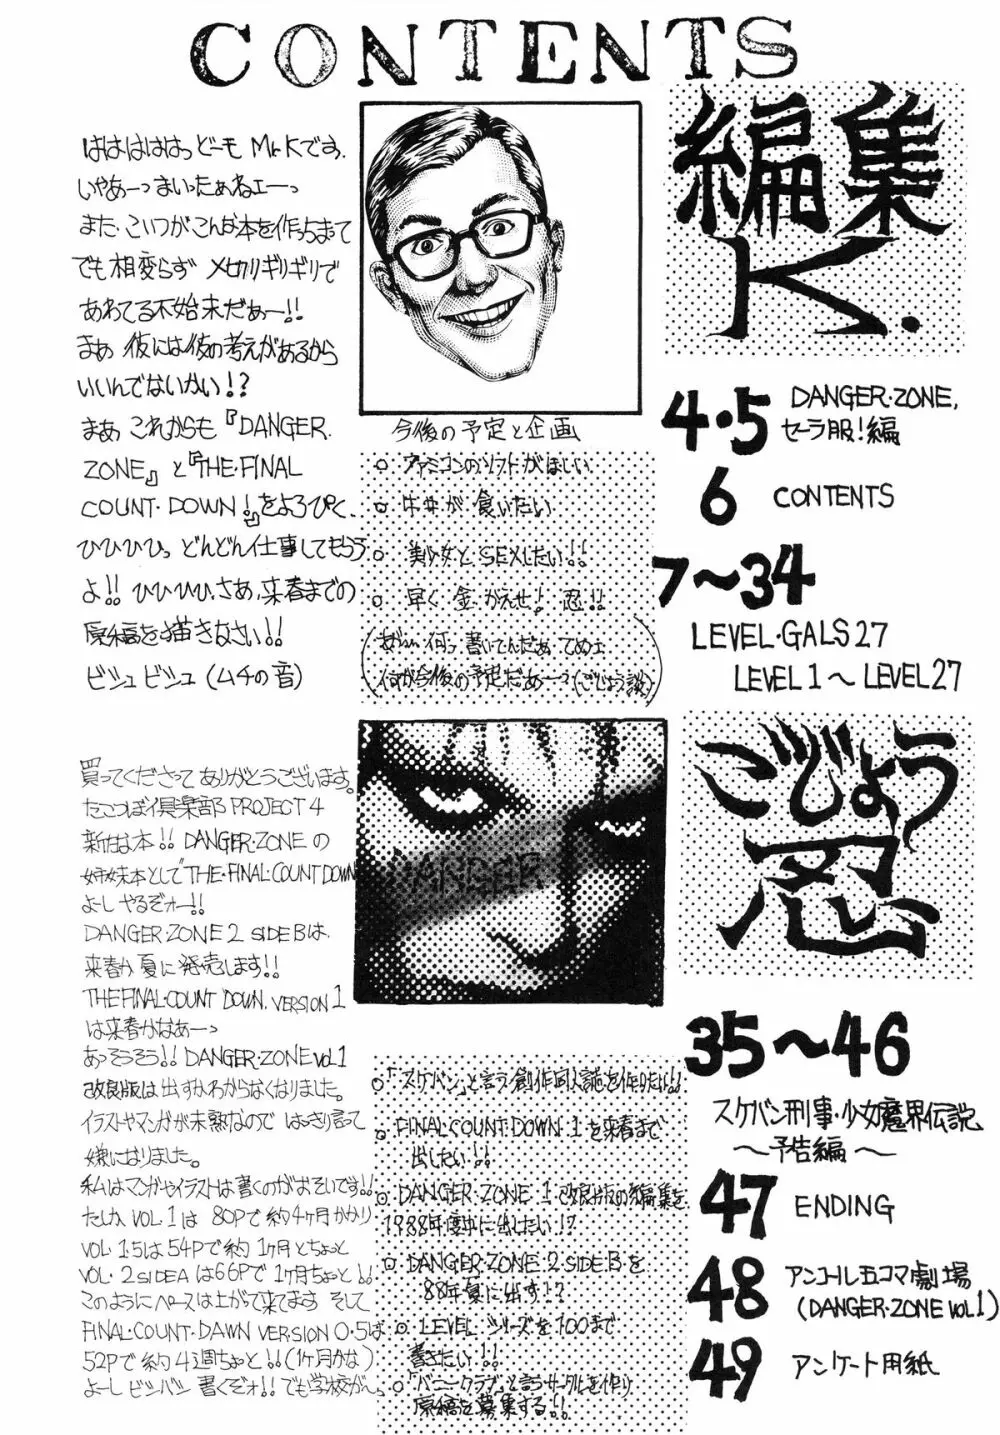 CONTENTS
編集
K.
はははははっどーも Mr.Kです。
いやあーっまいったぁねェーっ
また、こいつがこんな本を作るまで
でも相変らず 〆切りギリギリで
あわてる不始末だぁー!!
まぁ 彼には彼の考えがあるから
いいんでないかい!?
まぁ これからも『DANGER・
ZONE』と『THE・FINAL
COUNT・DOWN!』をよろぴく、
ひひひひっ どんどん仕事してもらう
よ!! ひひひひ、さあ、来春までの
原稿を描きなさい!!
ビシュビシュ(ムチの音)
今後の予定と企画
○ ファミコンのソフトがほしい
○ 牛丼が食いたい
○ 美少女とSEXしたい!!
○ 早く金かえせ! 忍!!
何が今後の予定だあーっ(ごじょう談)
4・5 DANGER・ZONE,
セーラ服!編
6 CONTENTS
7〜34
LEVEL・GALS27
LEVEL1〜LEVEL27
ごじょう
忍
買ってくださってありがとうございます。
たこつぼ倶楽部 PROJECT4
新作本!! DANGER・ZONEの
姉妹本として"THE・FINAL・COUNT DOWN
よーしやるぞォー!!
DANGER・ZONE2 SIDE Bは、
来春か夏に発売します!!
THE FINAL・COUNT DOWN. VERSION 1
は来春かなあーっ
あっそうそう!! DANGER・ZONE VOL1
改良版は出すかわからなくなりました。
イラストやマンガが未熟なので はっきり言って
嫌になりました。
私はマンガやイラストは書くのがおそいです!!
たしか VOL.1は 80Pで約4ヶ月かかり
VOL・1.5は54Pで約1ヶ月とちょっと
VOL・2 SIDEAは66Pで1ヶ月ちょっと!!
このようにペースは上がって来てます そして
FINAL・COUNT・DAWN VERSION 0・5は
52Pで約4週ちょっと!!(1ヶ月かな)
よーしビシバシ書くぞォ!! でも学校が…
DANGER
○「スケバン」と言う創作同人誌を作りたい!!
○ FINAL・COUNT DOWN 1を来春まで
出したい!!
○ DANGER・ZONE 1改良版の編集を
1988年度中に出したい!?
○ DANGER・ZONE 2 SIDE Bを
88年夏に出す!?
○ LEVEL シリーズを100まで
書きたい!!
○「バニークラブ」と言うサークルを作り
原稿を募集する!!
35〜46
スケバン刑事・少女魔界伝説
〜予告編〜
47 ENDING
48 アンコール五コマ劇場
(DANGER・ZONE VOL1)
49 アンケート用紙